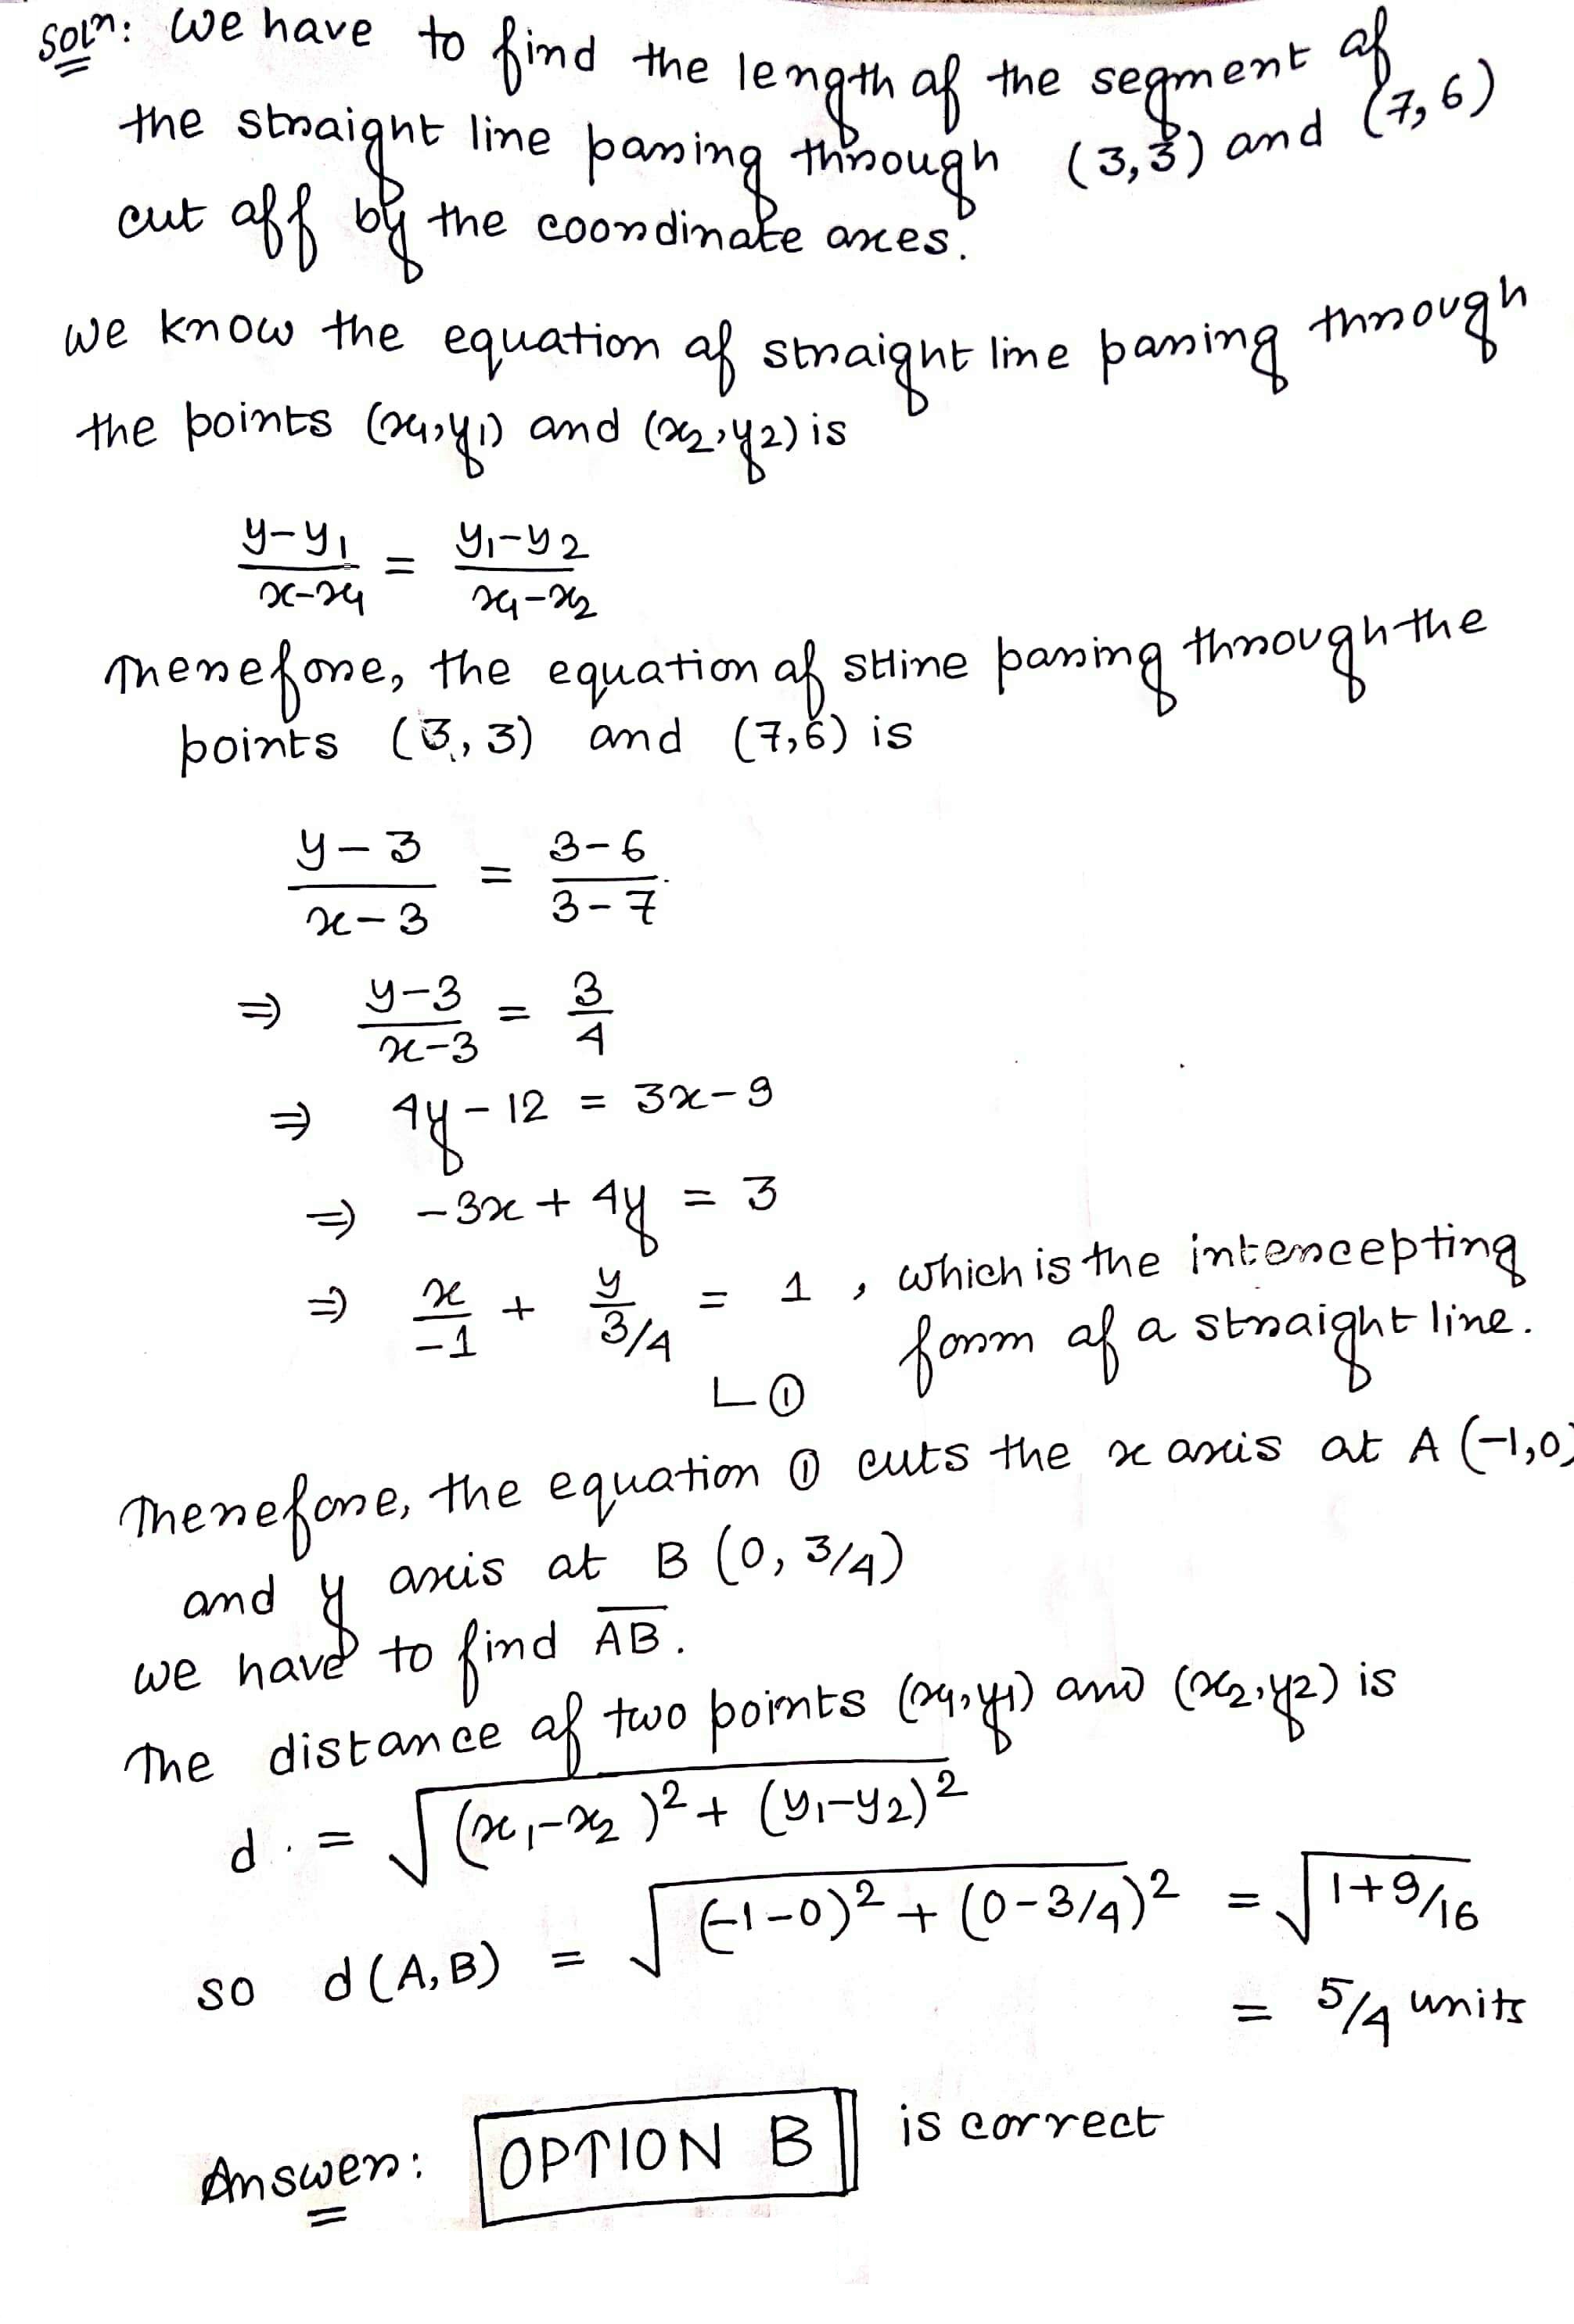 Soln: We have to find the length of the segment of
the straight line passing through (3,3) and (7,6)
cut off by the coordinate axes.
We know the equation of straight line passing through
the points (x₁,y₁) and (x₂,y₂) is
(y-y₁)/(x-x₁) = (y₁-y₂)/(x₁-x₂)
Therefore, the equation of stline passing through the
points (3,3) and (7,6) is
(y-3)/(x-3) = (3-6)/(3-7)
⇒ (y-3)/(x-3) = 3/4
⇒ 4y-12 = 3x-9
⇒ -3x+4y = 3
⇒ x/-1 + y/(3/4) = 1, which is the intercepting
form of a straight line.
①
Therefore, the equation ① cuts the x axis at A (-1,0)
and y axis at B (0, 3/4)
we have to find A̅B̅.
The distance of two points (x₁,y₁) and (x₂,y₂) is
d = √((x₁-x₂)²+(y₁-y₂)²)
so d(A,B) = √((-1-0)²+(0-3/4)²) = √(1+9/16)
= 5/4 units
Answer: OPTION B is correct